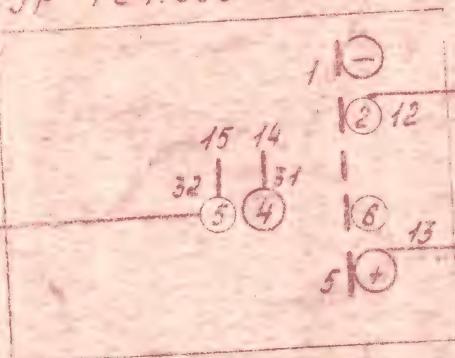 1 −
2 12
15 14
32 31
5 4 6
13
5 +